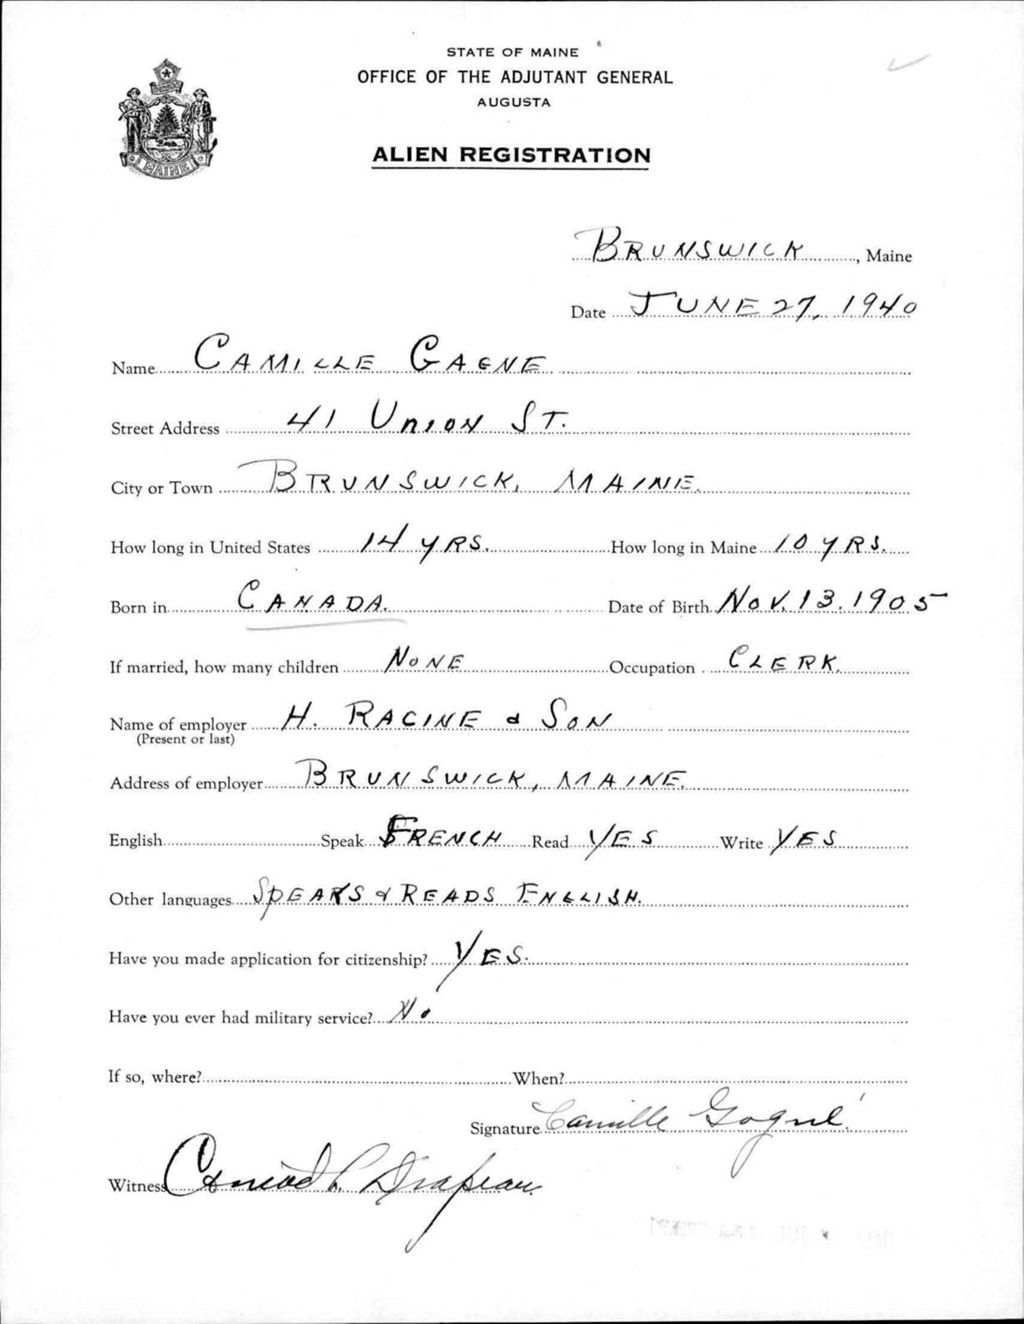 STATE OF MAINE
OFFICE OF THE ADJUTANT GENERAL
AUGUSTA
ALIEN REGISTRATION
MAINE
BRUNSWICK, Maine
Date JUNE 27, 1940
Name CAMILLE GAGNE
Street Address 41 UNION ST.
City or Town BRUNSWICK, MAINE.
How long in United States 14 YRS. How long in Maine 10 YRS.
Born in CANADA. Date of Birth NOV. 13. 1905
If married, how many children NONE Occupation CLERK.
Name of employer H. RACINE & SON
(Present or last)
Address of employer BRUNSWICK, MAINE.
English Speak FRENCH Read YES Write YES
Other languages SPEAKS & READS ENGLISH.
Have you made application for citizenship? YES.
Have you ever had military service? NO
If so, where? When?
Signature Camille Gagné
Witness Conrad Drapeau